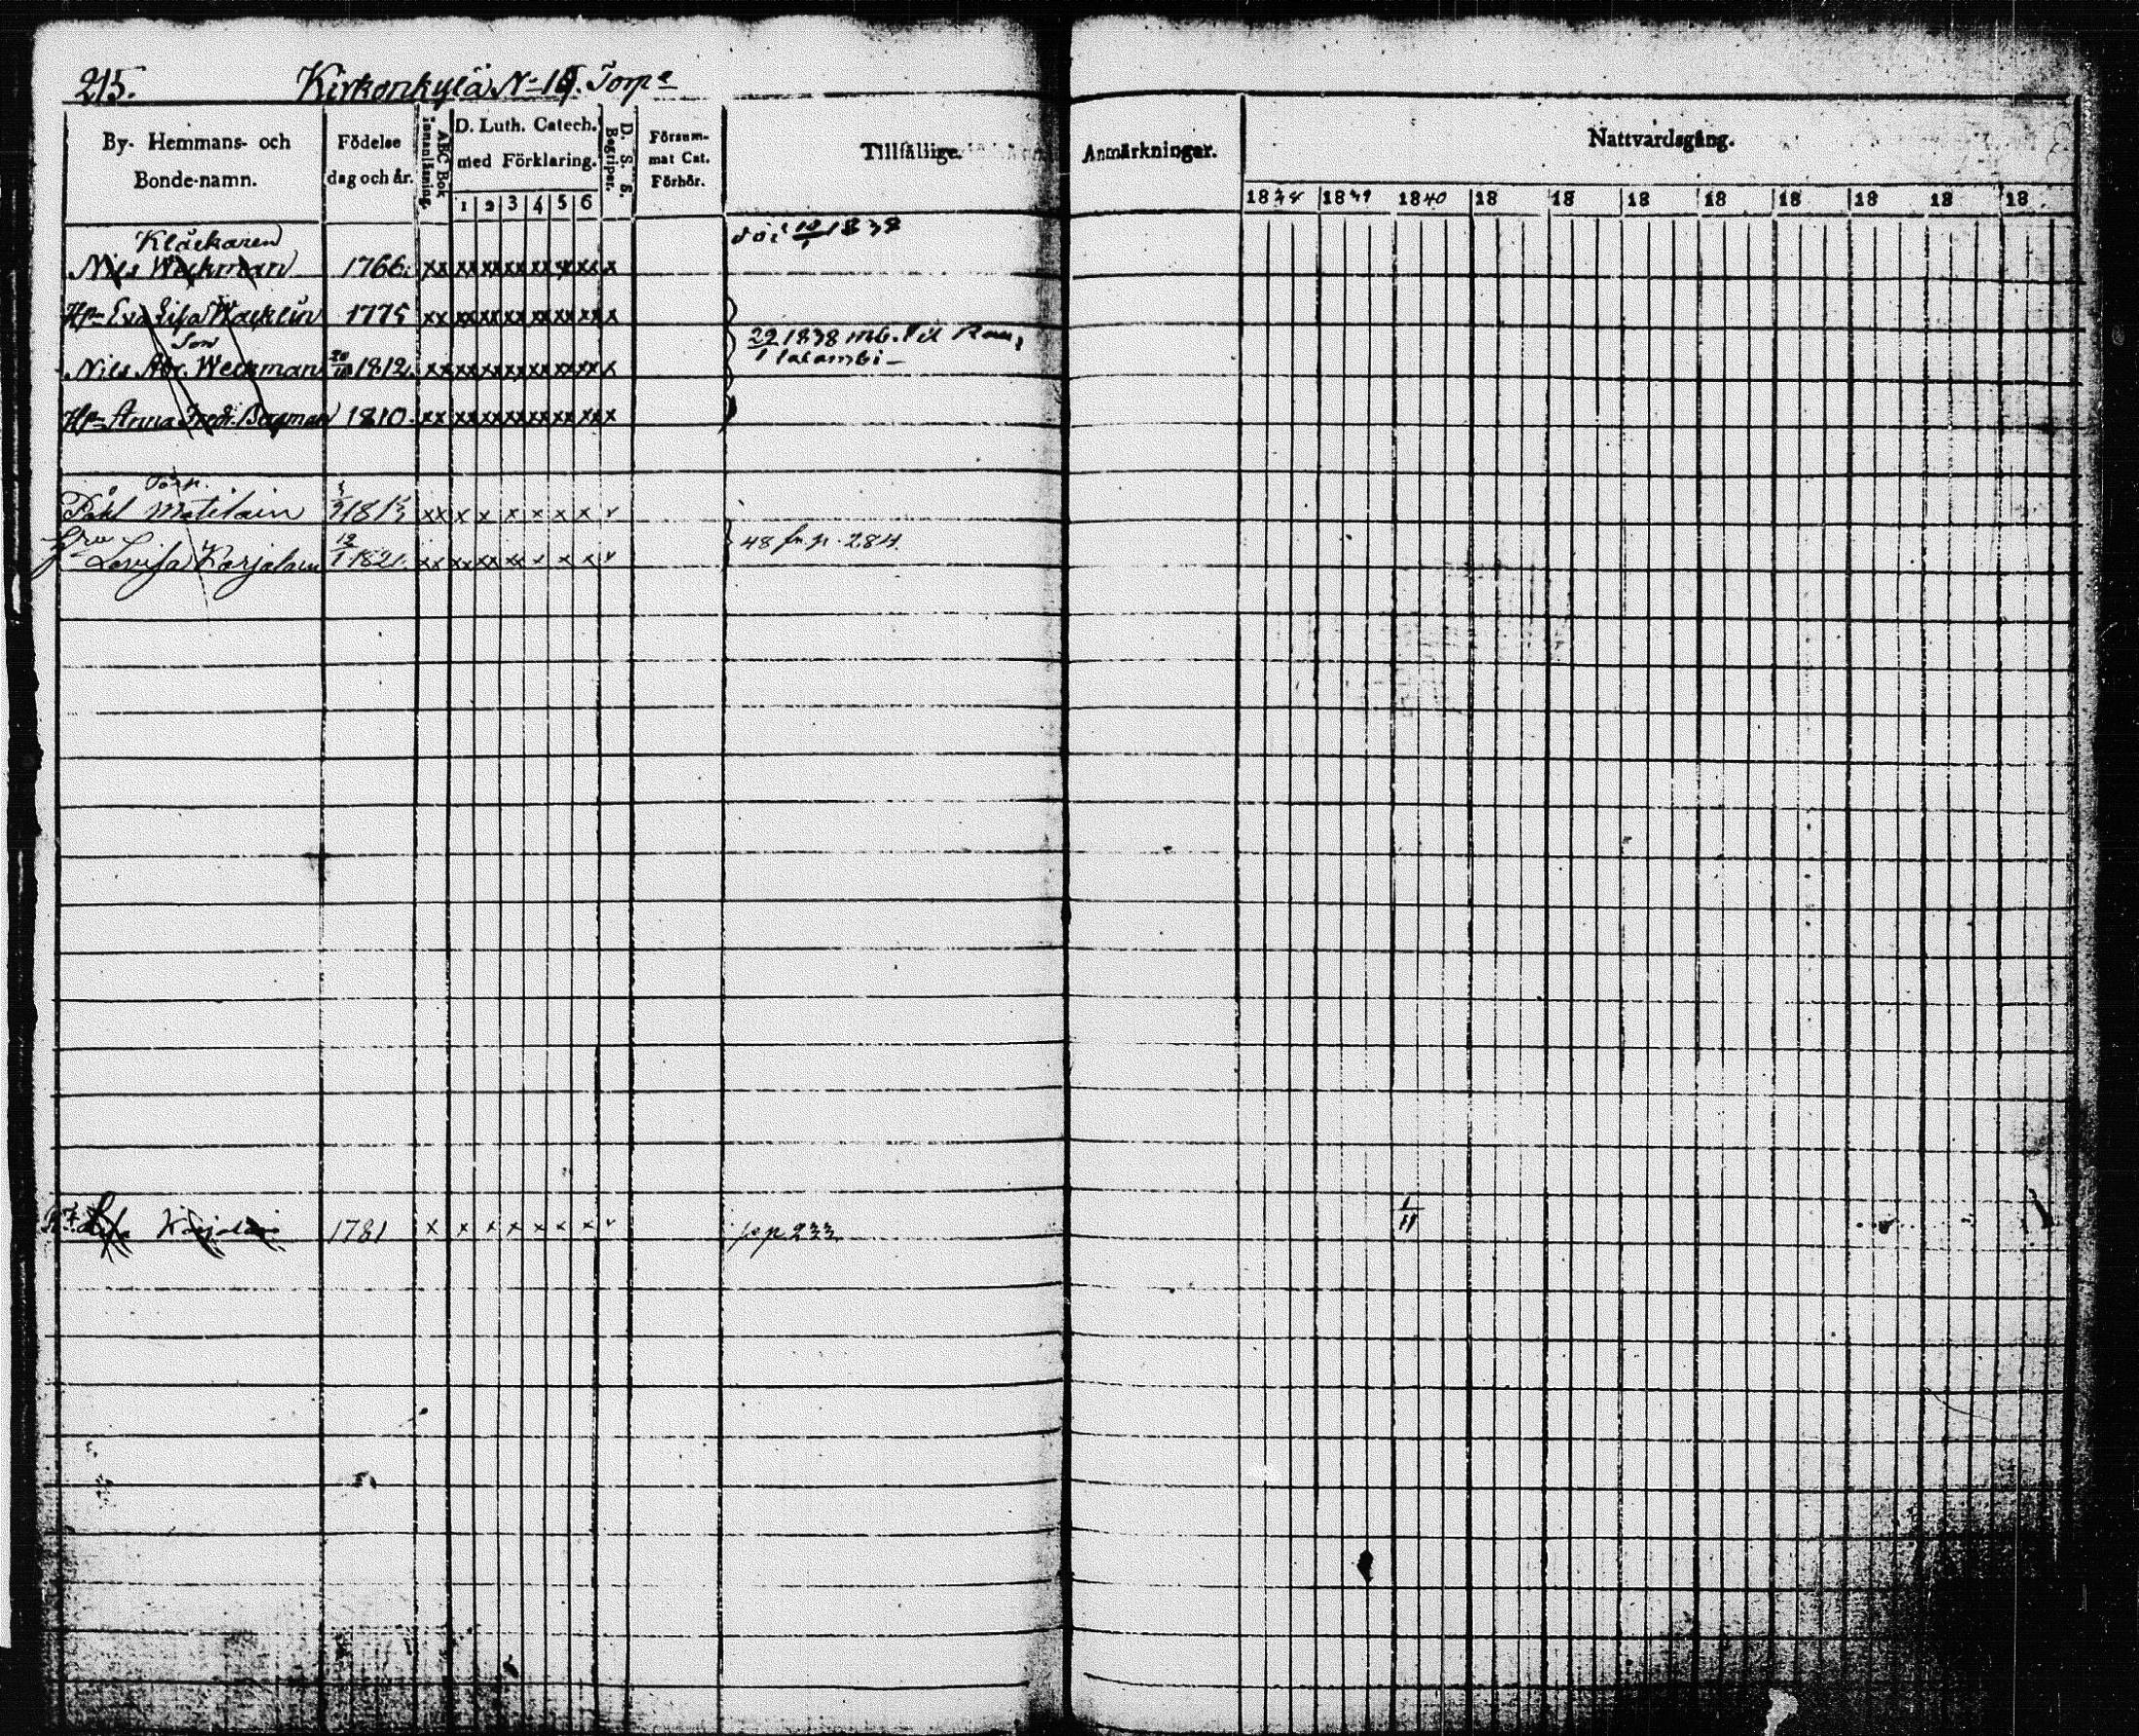 215. Kirkonkylä No 19. Torp
By- Hemmans- och Bonde-namn.
Födelse dag och år.
ABC Bok innanläsning.
D. Luth. Catech. med Förklaring.
1 2 3 4 5 6
D. S. S. Begriper.
Försum-mat Cat. Förhör.
Tillfällige.
Anmärkningar.
Nattvardsgång.
1838 1839 1840 18 18 18 18 18 18 18 18
Klåckaren
Nils Weckman 1766. xx xx xx xx xx xx xx x död 10/1 1838
Hu Eva Lisa Wacklin 1775 xx xx xx xx xx xx xx x
Son
Nils Abr. Weckman 20/10 1812. xx xx xx xx xx xx xx x 22/1 1838 mb. till Rau,
talambi
Hu Anna Fredr. Bergman 1810. xx xx xx xx xx xx xx x
Torp.
Påhl Matilain 1815 xx x x x x x x v
Hru
Lovisa Karjalain 12/1 1821. xx xx xx xx x x x v 48 fr. p. 284.
Lisa Karjalain 1781 x x x x x x x v p 233 1/11